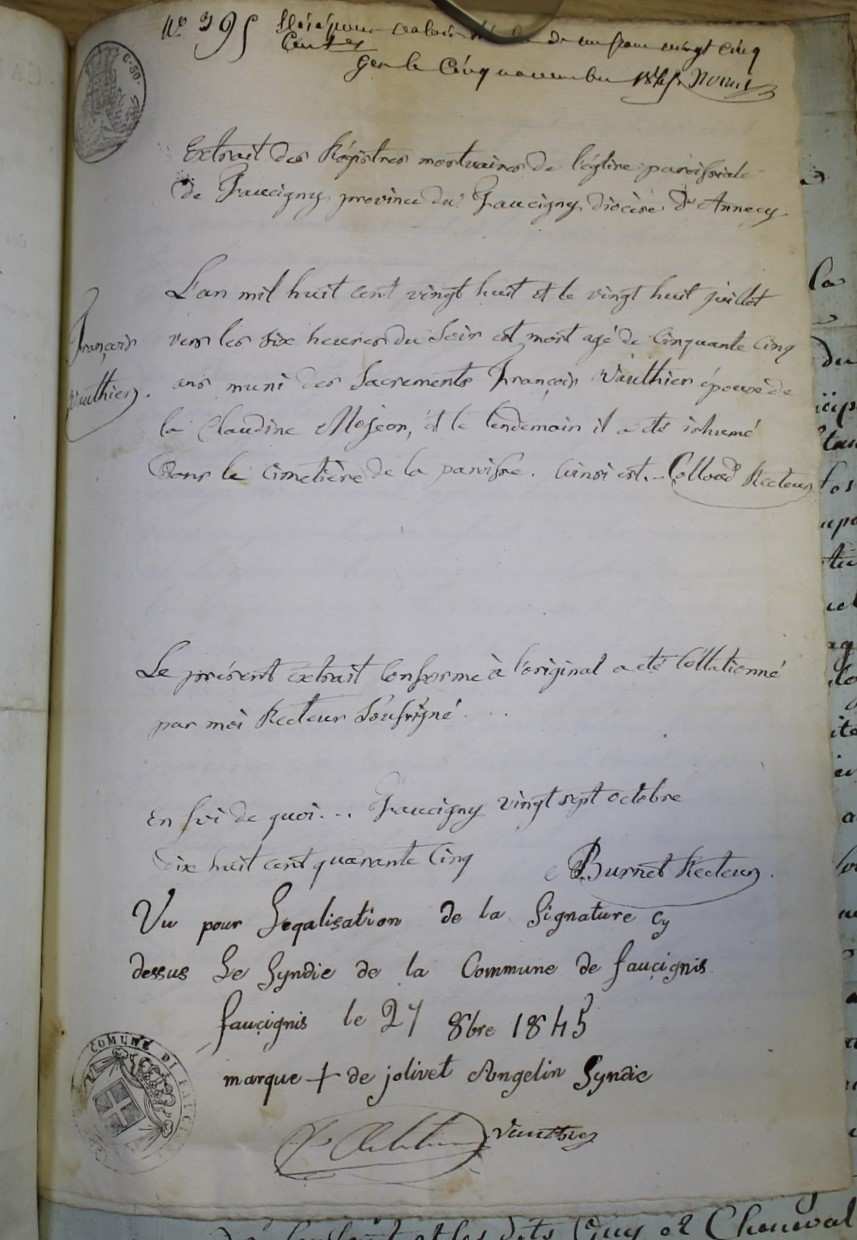 N° 295
de un franc vingt cinq
centes
le cinq novembre 1845
C. 50.
Extrait des Régistres mortuaires de l'église paroissiale
de Faucigny province du Faucigny, diocèse d'Annecy.
L'an mil huit cent vingt huit et le vingt huit juillet
vers les six heures du soir est mort agé de cinquante cinq
ans muni des Sacrements François Vauthier époux de
la Claudine Mojeon, et le lendemain il a été inhumé
dans le cimetière de la paroisse. Ainsi est. Recteur
François
Vauthier.
Le présent extrait conforme à l'original a été Collationné
par moi Recteur Soussigné...
En foi de quoi... Faucigny vingt sept octobre
dix huit cent quarante cinq
Burnet Recteur.
Vu pour Legalisation de la Signature cy
dessus Le Syndic de la Commune de faucignis
faucignis le 27 8bre 1845
marque + de jolivet Angelin Syndic
COMUNE DI
la
du